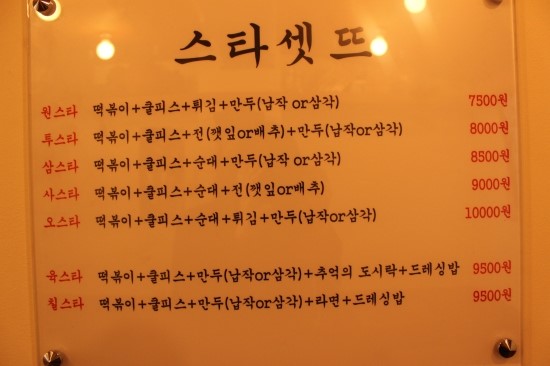 스타셋뜨
원스타 떡볶이+쿨피스+튀김+만두(납작 or삼각) 7500원
투스타 떡볶이+쿨피스+전(깻잎or배추)+만두(납작or삼각) 8000원
삼스타 떡볶이+쿨피스+순대+만두(납작 or삼각) 8500원
사스타 떡볶이+쿨피스+순대+전(깻잎or배추) 9000원
오스타 떡볶이+쿨피스+순대+튀김+만두(납작or삼각) 10000원
육스타 떡볶이+쿨피스+만두(납작or삼각)+추억의 도시락+드레싱밥 9500원
칠스타 떡볶이+쿨피스+만두(납작or삼각)+라면+드레싱밥 9500원